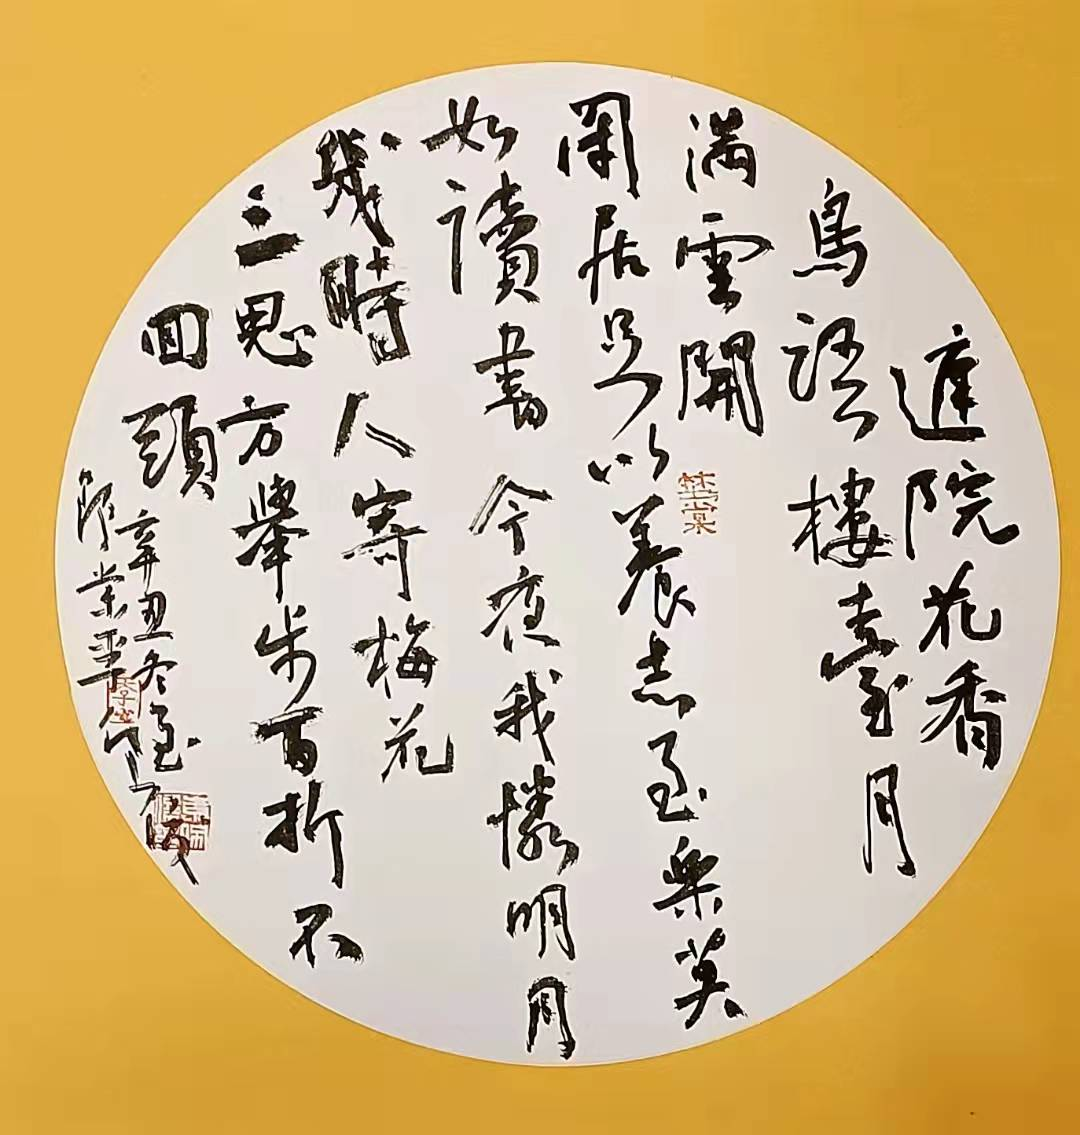 庭院花香
鳥語樓臺月
满雲開
閑居足以養志至樂莫
如讀書今夜我憐明月
幾時人寄梅花
三思方舉步百折不
回頭
辛丑冬至